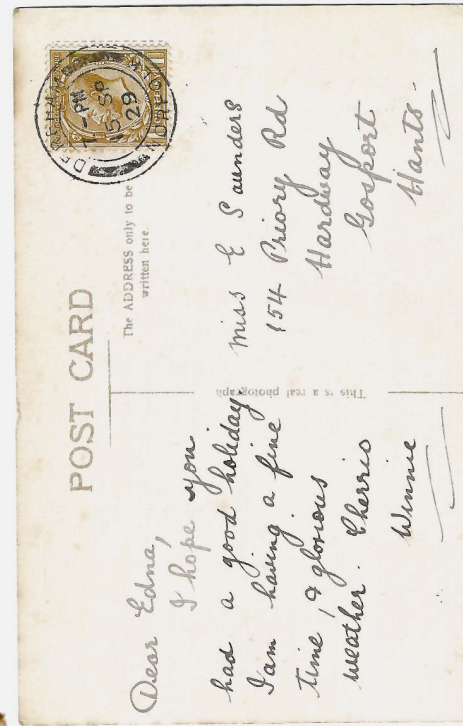 POST CARD
The ADDRESS only to be
written here.
This is a real photograph
Dear Edna,
I hope you
had a good holiday
I am having a fine
time, & glorious
weather. Cherrio
Winnie
Miss E Saunders
154 Priory Rd
Hardway
Gosport
Hants.
7 - PM
15 SP
29
NORFOLK